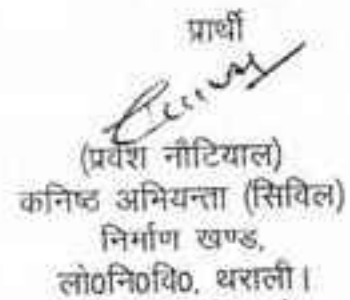 प्रार्थी
(प्रवेश नौटियाल)
कनिष्ठ अभियन्ता (सिविल)
निर्माण खण्ड,
लो0नि0वि0, थराली।